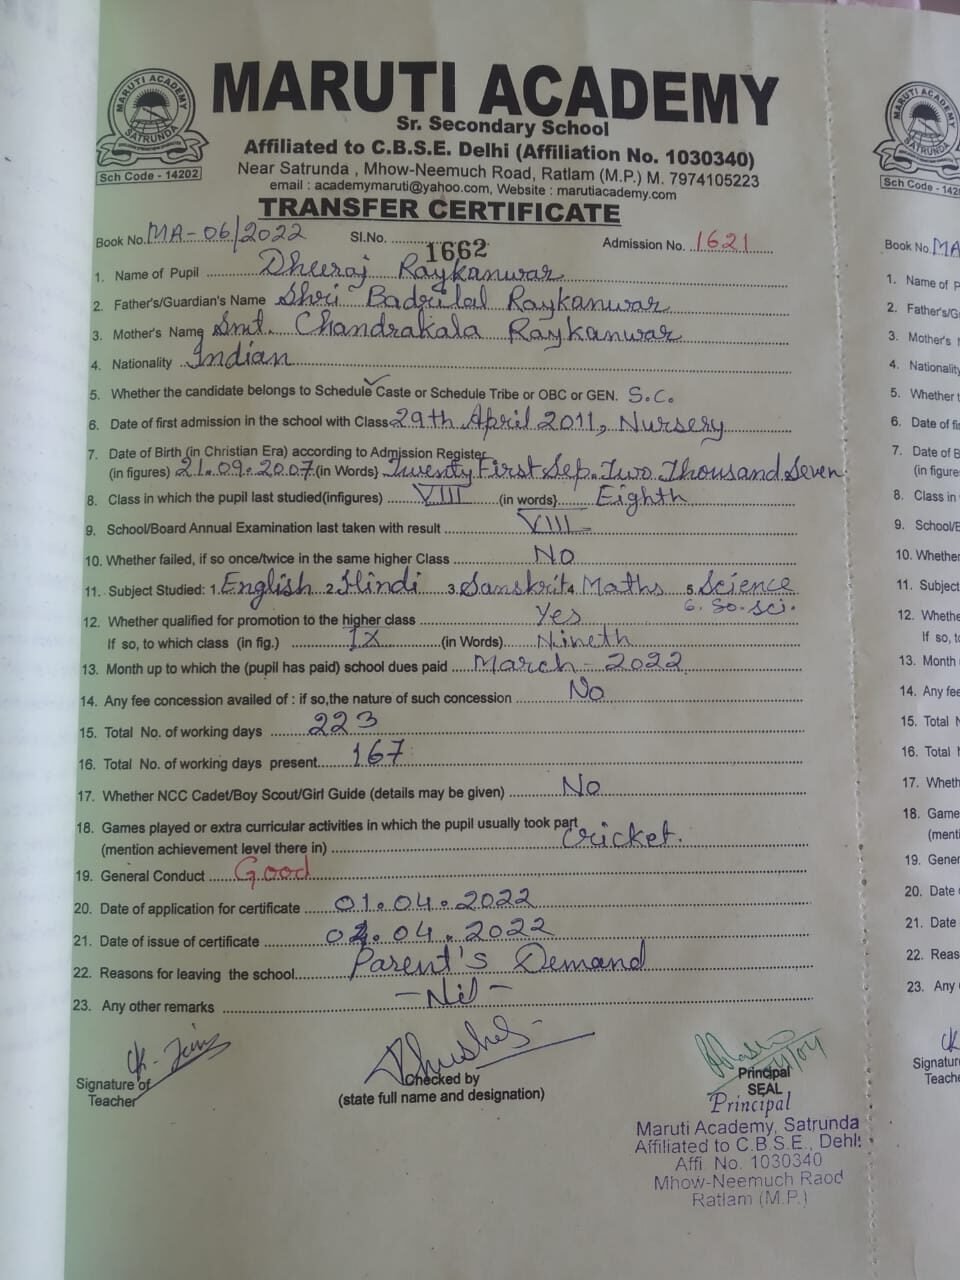 MARUTI ACADEMY
Sr. Secondary School
Affiliated to C.B.S.E. Delhi (Affiliation No. 1030340)
Near Satrunda , Mhow-Neemuch Road, Ratlam (M.P.) M. 7974105223
email : academymaruti@yahoo.com, Website : marutiacademy.com
MARUTI ACADEMY
SATRUNDA
Sch Code - 14202
TRANSFER CERTIFICATE
Book No. MA-06/2022 Sl.No. 1662 Admission No. 1621
1. Name of Pupil Dheeraj Raykanwar
2. Father's/Guardian's Name Shri Badrilal Raykanwar
3. Mother's Name Smt. Chandrakala Raykanwar
4. Nationality Indian
5. Whether the candidate belongs to Schedule Caste or Schedule Tribe or OBC or GEN. S.C.
6. Date of first admission in the school with Class 29th April 2011, Nursery
7. Date of Birth (in Christian Era) according to Admission Register
(in figures) 21.09.2007 (in Words) Twenty First Sep. Two Thousand Seven
8. Class in which the pupil last studied(infigures) VIII (in words} Eighth
9. School/Board Annual Examination last taken with result VIII
10. Whether failed, if so once/twice in the same higher Class No
11. Subject Studied: 1. English 2. Hindi 3. Sanskrit 4. Maths 5. Science
6. So. Sci.
12. Whether qualified for promotion to the higher class Yes
If so, to which class (in fig.) IX (in Words) Nineth
13. Month up to which the (pupil has paid) school dues paid March - 2022
14. Any fee concession availed of : if so,the nature of such concession No
15. Total No. of working days 223
16. Total No. of working days present 167
17. Whether NCC Cadet/Boy Scout/Girl Guide (details may be given) No
18. Games played or extra curricular activities in which the pupil usually took part
(mention achievement level there in) Cricket.
19. General Conduct Good
20. Date of application for certificate 01.04.2022
21. Date of issue of certificate 04.2022
22. Reasons for leaving the school Parent's Demand
23. Any other remarks - Nil -
Signature of
Teacher
Checked by
(state full name and designation)
Principal
SEAL
Principal
Maruti Academy, Satrunda
Affiliated to C.B.S.E., Dehli
Affi No. 1030340
Mhow-Neemuch Raod
Ratlam (M.P.)
MARUTI ACADEMY
SATRUNDA
Sch Code - 1420
Book No. MA
1. Name of P
2. Father's/G
3. Mother's
4. Nationality
5. Whether t
6. Date of fi
7. Date of B
(in figure
8. Class in
9. School/B
10. Whether
11. Subject
12. Whethe
If so, to
13. Month
14. Any fe
15. Total
16. Total
17. Wheth
18. Game
(menti
19. Gener
20. Date
21. Date
22. Reas
23. Any
Signatur
Teache